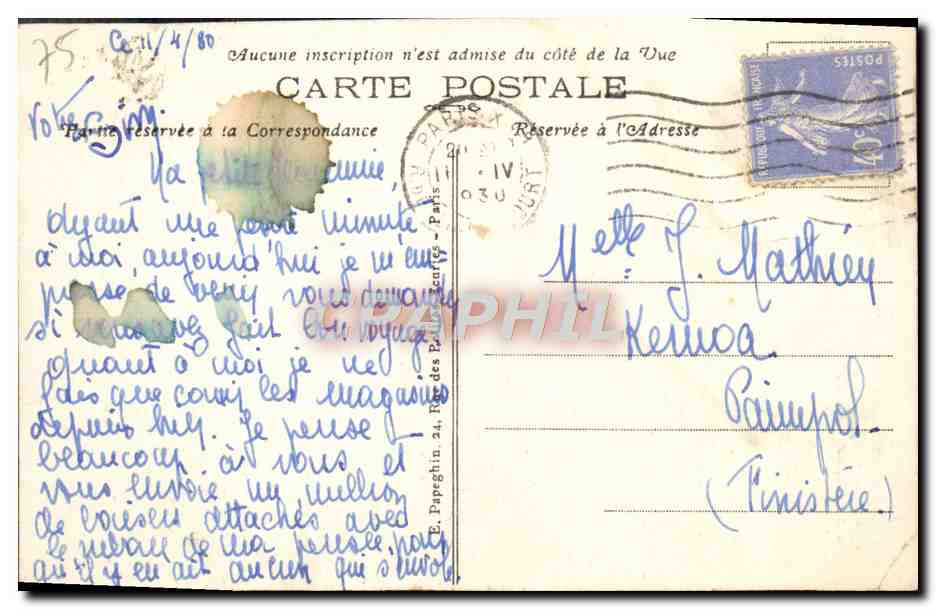 75.
Ce 11/4/30
Aucune inscription n'est admise du côté de la Vue
CARTE POSTALE
Partie réservée à la Correspondance
Réservée à l'Adresse
POSTES
REPUBLIQUE FRANÇAISE
40 c
PARIS X
11 IV
930
Ma petite
ayant une petite minute
à moi, aujourd'hui je m'em
presse de venir vous demander
si vous avez fait bon voyage
quant à moi je ne
fais que courir les magasins
depuis hier. Je pense
beaucoup à vous et
vous envoie un million
de baisers attachés avec
le ruban de ma pensée, pour
qu'il y en ait aucun qui s'envole.
E. Papeghin. 24, Rue des Petites-Ecuries - Paris
Melle J. Mathieu
Kernoa
Paimpol
(Finistère)
CPAPHIL